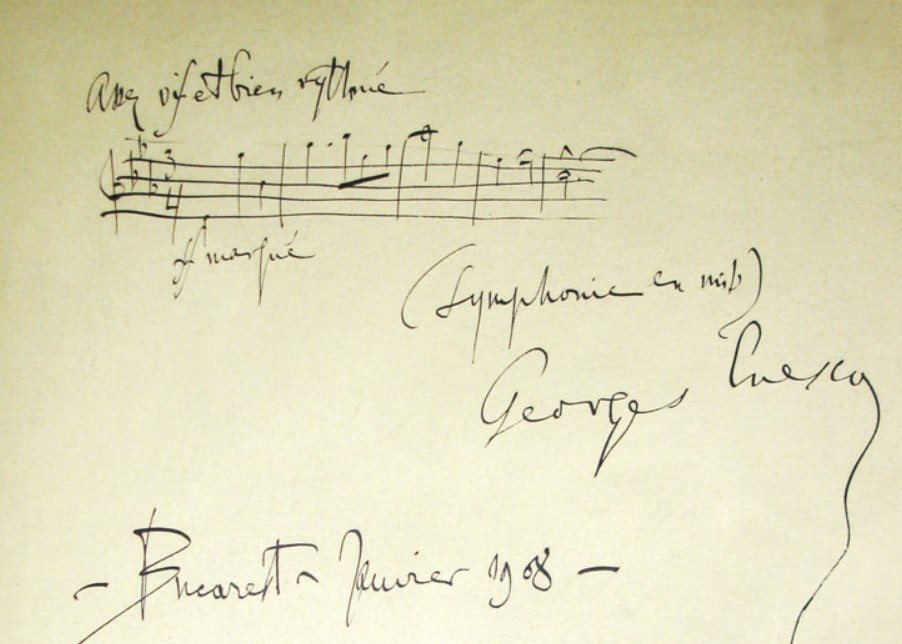 Assez vif et bien rythmé
3
4
ff marqué
(Symphonie en mi♭)
Georges Enesco
- Bucarest - Janvier 1908 -